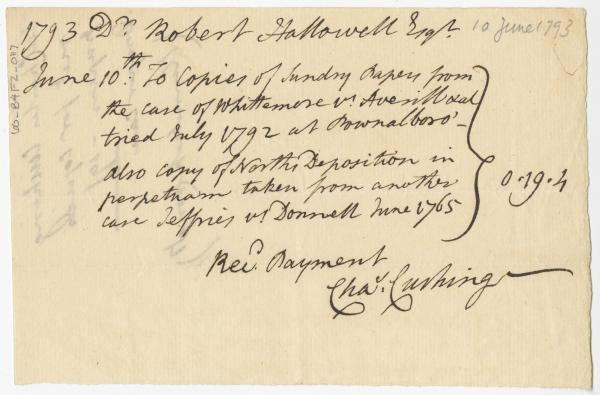 1793 Dr. Robert Hallowell Esqr.
10 June 1793
June 10th. To Copies of Sundry Papers from
the case of Whittemore vs. Averill & al
tried July 1792 at Pownalboro'
also copy of Norths Deposition in
perpetuam taken from another
case Jeffries vs. Donnell June 1765
0.19.4
Recd. Payment
Chas. Cushing